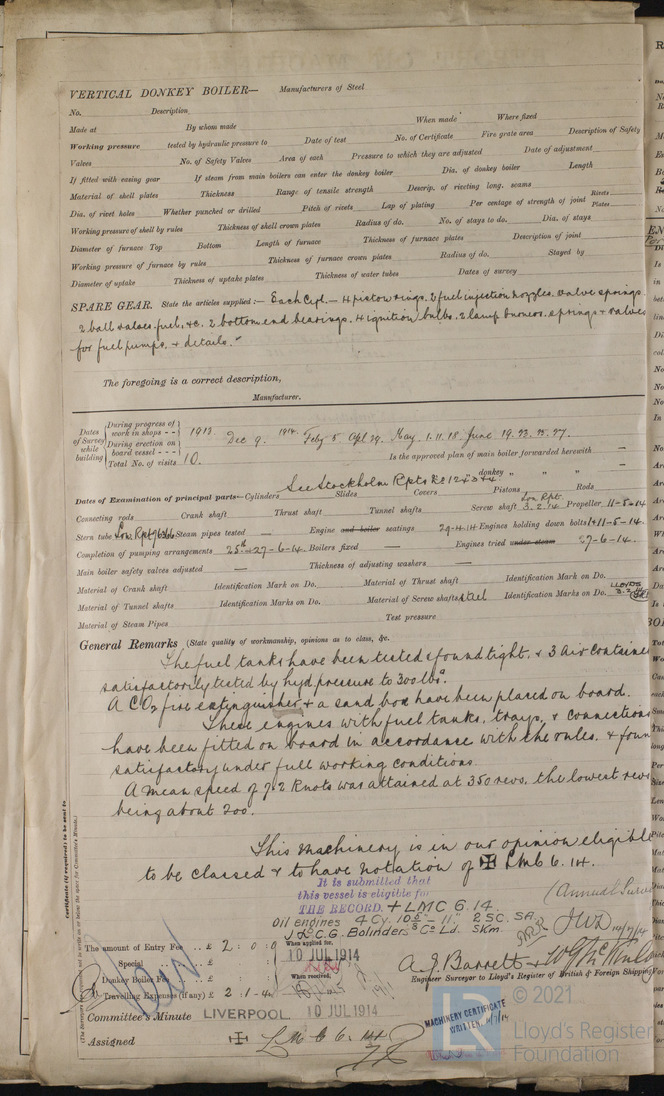 VERTICAL DONKEY BOILER— Manufacturers of Steel
No. Description
Made at By whom made When made Where fixed
Working pressure tested by hydraulic pressure to Date of test No. of Certificate Fire grate area Description of Safety
Valves No. of Safety Valves Area of each Pressure to which they are adjusted Date of adjustment
If fitted with easing gear If steam from main boilers can enter the donkey boiler Dia. of donkey boiler Length
Material of shell plates Thickness Range of tensile strength Descrip. of riveting long. seams
Dia. of rivet holes Whether punched or drilled Pitch of rivets Lap of plating Per centage of strength of joint Rivets Plates
Working pressure of shell by rules Thickness of shell crown plates Radius of do. No. of stays to do. Dia. of stays
Diameter of furnace Top Bottom Length of furnace Thickness of furnace plates Description of joint
Working pressure of furnace by rules Thickness of furnace crown plates Radius of do. Stayed by
Diameter of uptake Thickness of uptake plates Thickness of water tubes Dates of survey
SPARE GEAR. State the articles supplied:— Each Cyl.— 4 piston rings. 2 fuel injection nozzles. valve springs
2 ball valves. fuel, &c. 2 bottom end bearings. 4 ignition bulbs. 2 lamp burners, springs + valves
for fuel pumps. + details.
The foregoing is a correct description,
Manufacturer.
Dates of Survey while building
During progress of work in shops - - 1913 Dec 9. 1914. Feby 5 Apl 29. May. 1. 11. 18. June 19. 23. 25. 27.
During erection on board vessel - - -
Total No. of visits 10. Is the approved plan of main boiler forwarded herewith —
donkey " " " —
Dates of Examination of principal parts—Cylinders See Stockholm Rpts Slides Covers Pistons Rods
Connecting rods Crank shaft Thrust shaft Tunnel shafts Screw shaft Lon Rpt. 3. 2. 14 Propeller 11-5-14
Stern tube Lon. Rpt Steam pipes tested — Engine and boiler seatings 29-4-14 Engines holding down bolts 1+11-5-14.
Completion of pumping arrangements 25th - 27-6-14. Boilers fixed — Engines tried under steam 27-6-14.
Main boiler safety valves adjusted — Thickness of adjusting washers —
Material of Crank shaft Identification Mark on Do. Material of Thrust shaft Identification Mark on Do.
Material of Tunnel shafts Identification Marks on Do. Material of Screw shafts steel Identification Marks on Do. LLOYDS
Material of Steam Pipes Test pressure
General Remarks (State quality of workmanship, opinions as to class, &c.
The fuel tanks have been tested & found tight. + 3 Air Containe
satisfactorily tested by hyd pressure to 300 lbs.
A CO2 fire extinguisher + a sand box have been placed on board.
These engines with fuel tanks, trays, + connections
have been fitted on board in accordance with the rules. + foun
satisfactory under full working conditions.
A mean speed of 7.2 Knots was attained at 350 revs. the lowest revs
being about 200.
This machinery is in our opinion eligible
to be classed + to have notation of ✠ LMC 6. 14.
It is submitted that
this vessel is eligible for
THE RECORD. + LMC 6.14.
(Annual Surve
Oil engines 4 Cy. 10⅝" - 11" 2 SC. SA.
J & C.G. Bolinders Co Ld. SKm.
JWD 14/7/14
Certificate (if required) to be sent to
The amount of Entry Fee .. £ 2 : 0 : 0 When applied for,
Special .. £ : : 10 JUL 1914
Donkey Boiler Fee .. £ : : When received,
Travelling Expenses (if any) £ 2 : 1 : 4
A. J. Barrett +
Engineer Surveyor to Lloyd's Register of British & Foreign Shipping
Committee's Minute LIVERPOOL. 10 JUL 1914
Assigned ✠ LMC 6. 14
MACHINERY CERTIFICATE
WRITTEN.
LR
© 2021
Lloyd's Register
Foundation